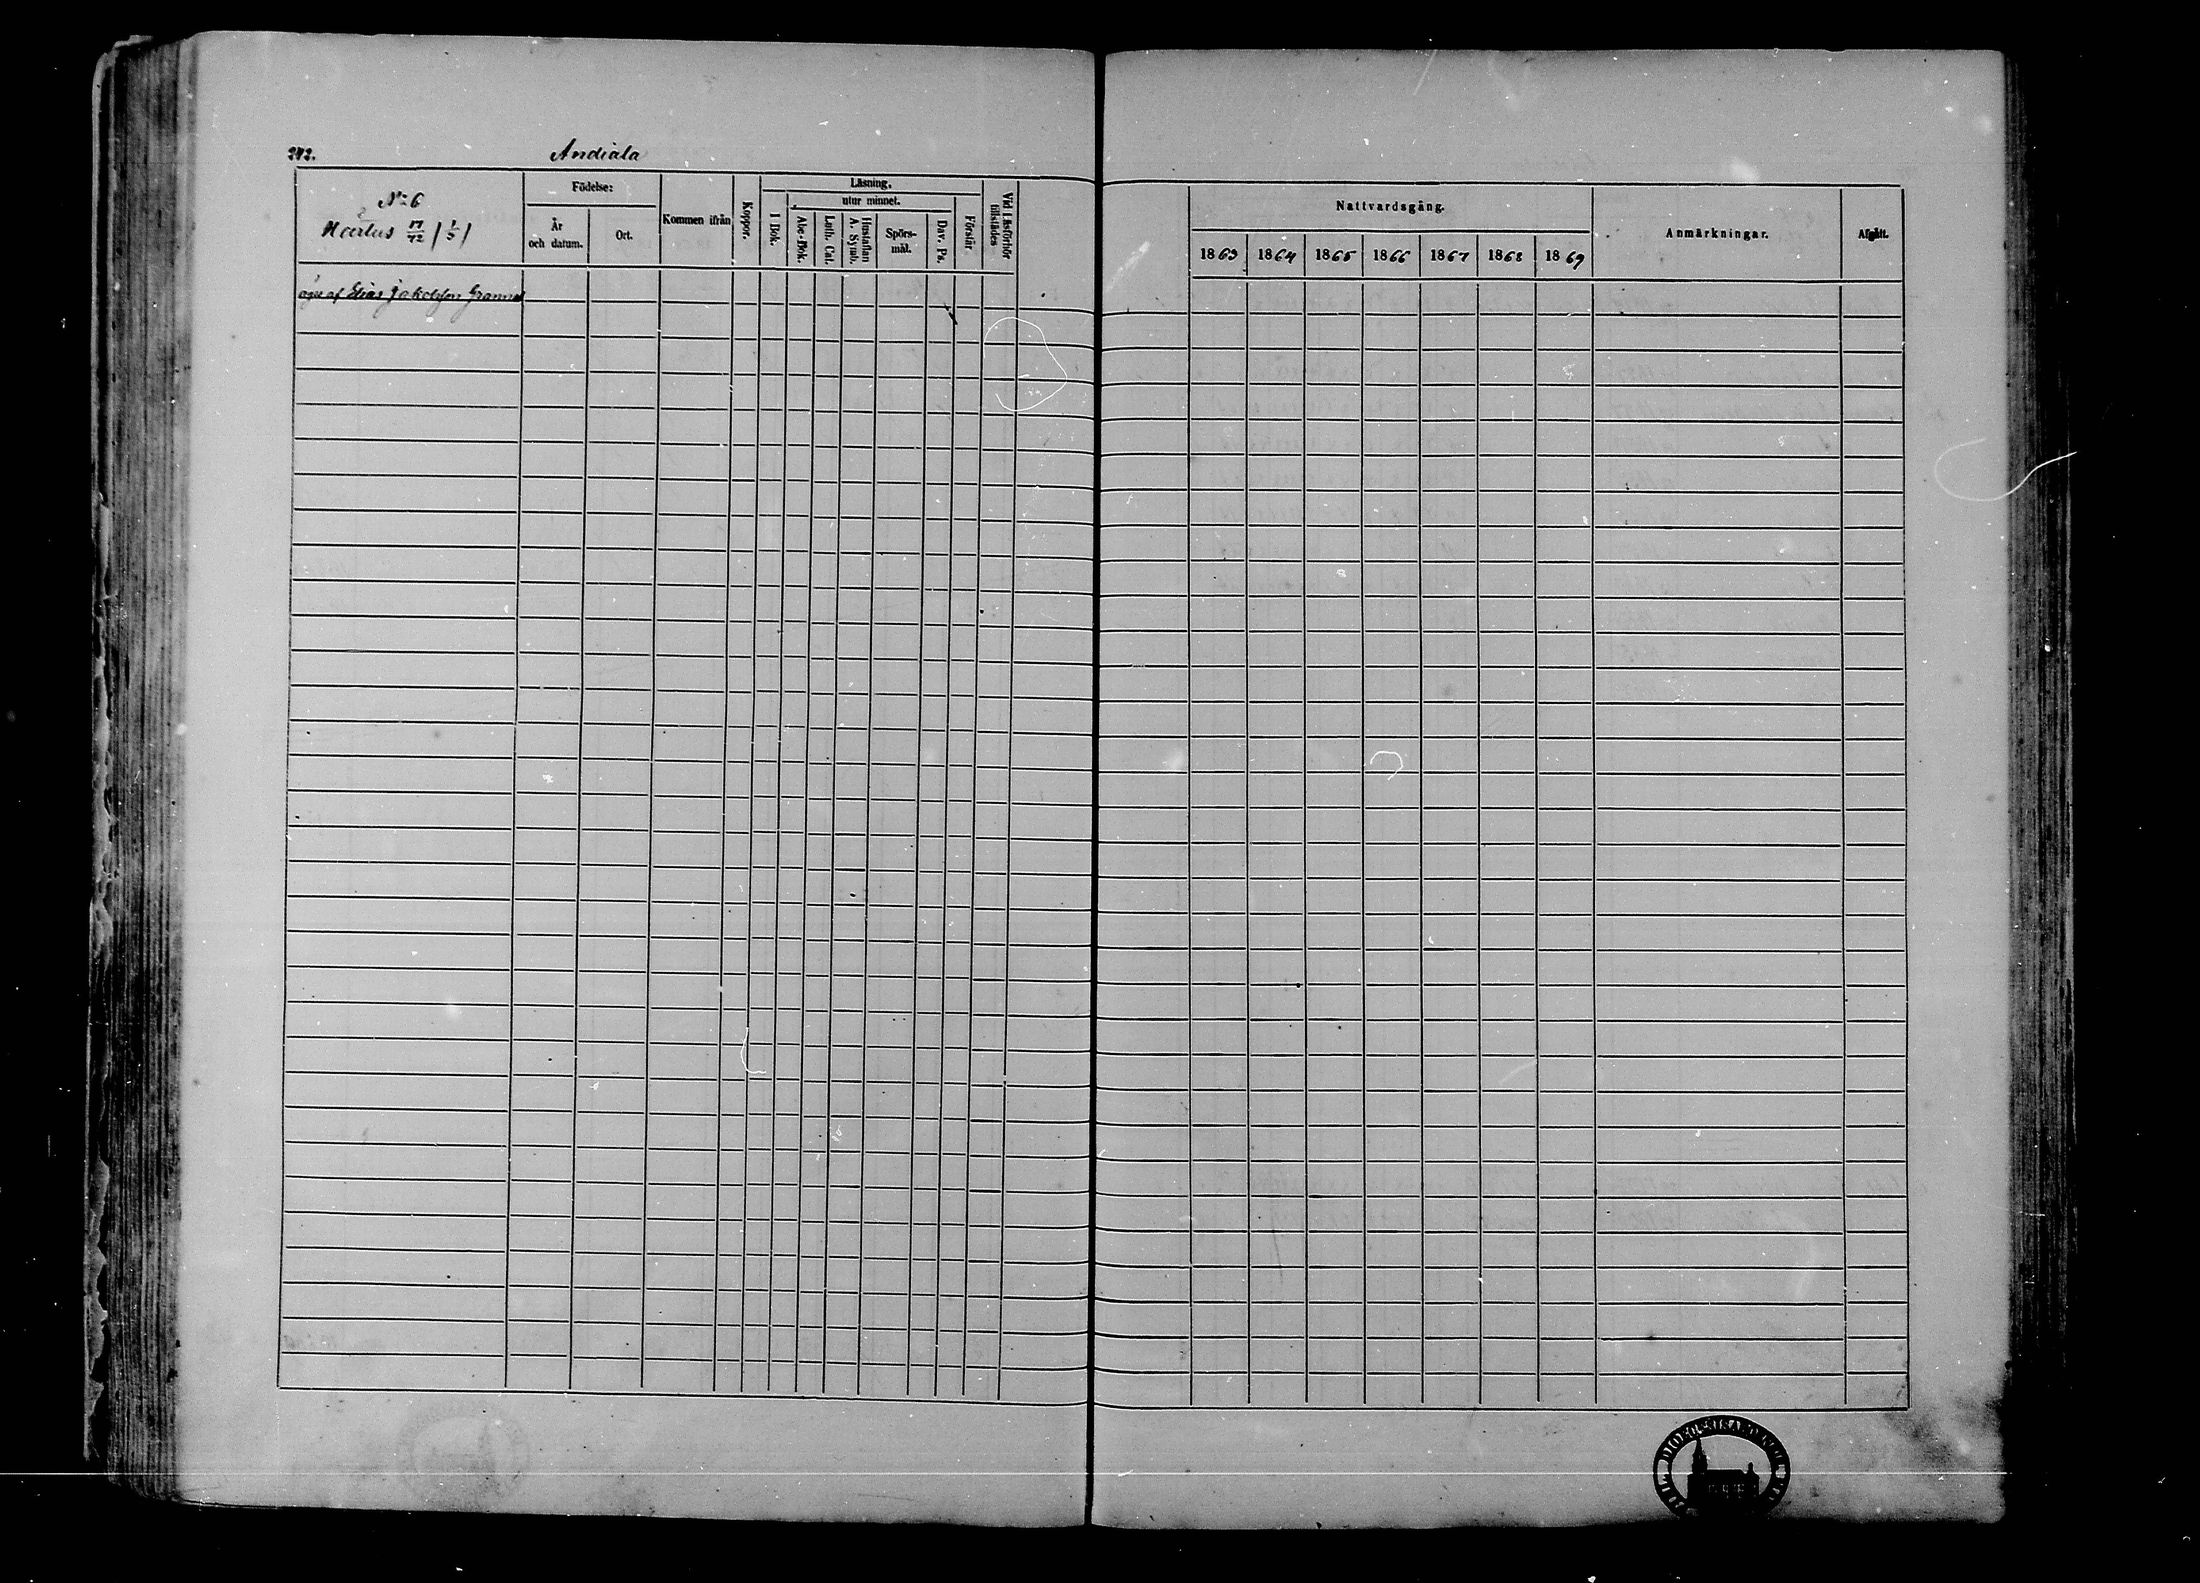 242.
Andiala
No 6
Martus 17/72 (1/3)
Födelse:
År
och datum.
Ort.
Kommen ifrån
Koppor.
Läsning,
utur minnet.
I Bok.
Abc-Bok.
Luth. Cat.
Hustaflan
A. Symb.
Spörs-
mål.
Dav. Ps.
Förstår.
Vid Läsförhör
tillstädes
Nattvardsgång.
1863 1864 1865 1866 1867 1868 1869
Anmärkningar.
Afgått.
äges af Elias Jakobsson